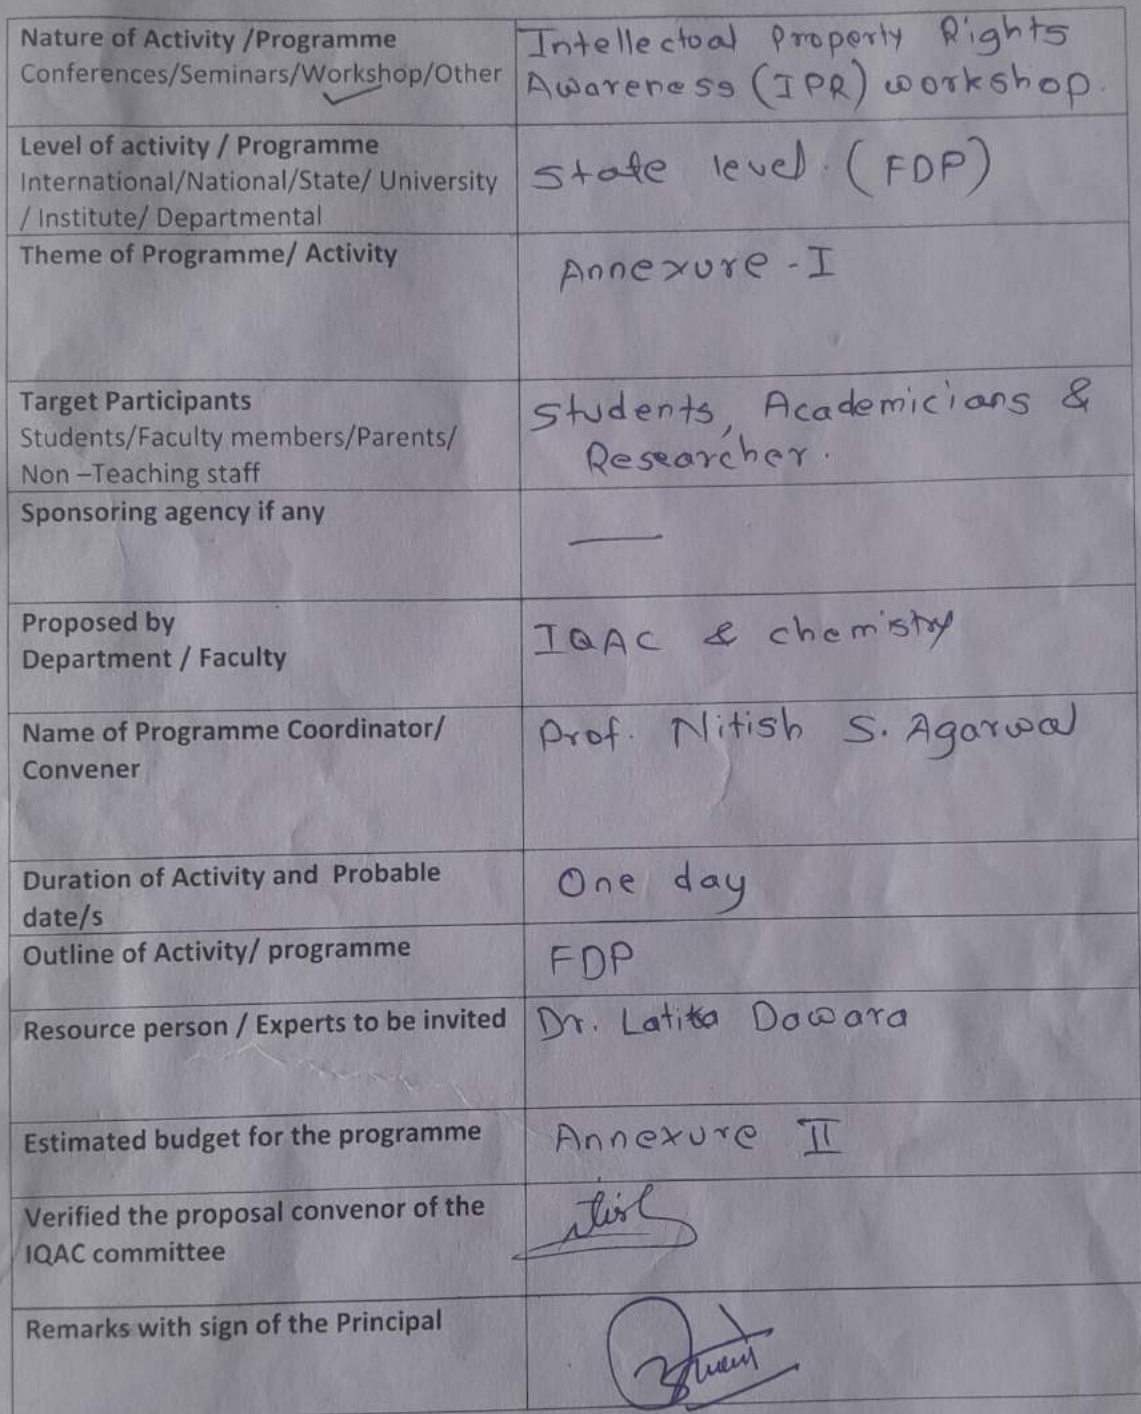 Nature of Activity /Programme
Conferences/Seminars/Workshop/Other
Intellectoal Property Rights
Awareness (IPR) workshop.
Level of activity / Programme
International/National/State/ University
/ Institute/ Departmental
State level. (FDP)
Theme of Programme/ Activity
Annexure - I
Target Participants
Students/Faculty members/Parents/
Non –Teaching staff
Students, Academicians &
Researcher.
Sponsoring agency if any
—
Proposed by
Department / Faculty
IQAC & chemistry
Name of Programme Coordinator/
Convener
Prof. Nitish S. Agarwal
Duration of Activity and Probable
date/s
One day
Outline of Activity/ programme
FDP
Resource person / Experts to be invited
Dr. Latika Dawara
Estimated budget for the programme
Annexure II
Verified the proposal convenor of the
IQAC committee
Remarks with sign of the Principal